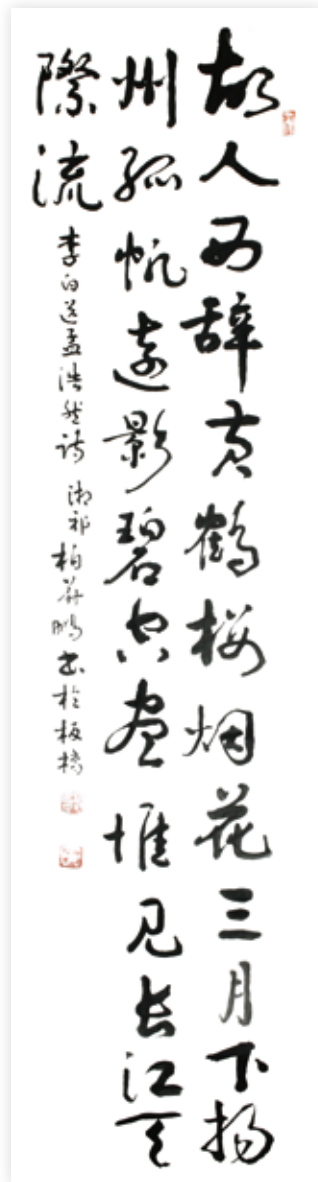 故人西辞黄鹤楼烟花三月下扬
州孤帆远影碧空尽惟见长江天
際流
李白送孟浩然诗 湘祁柏 鹏书于板桥